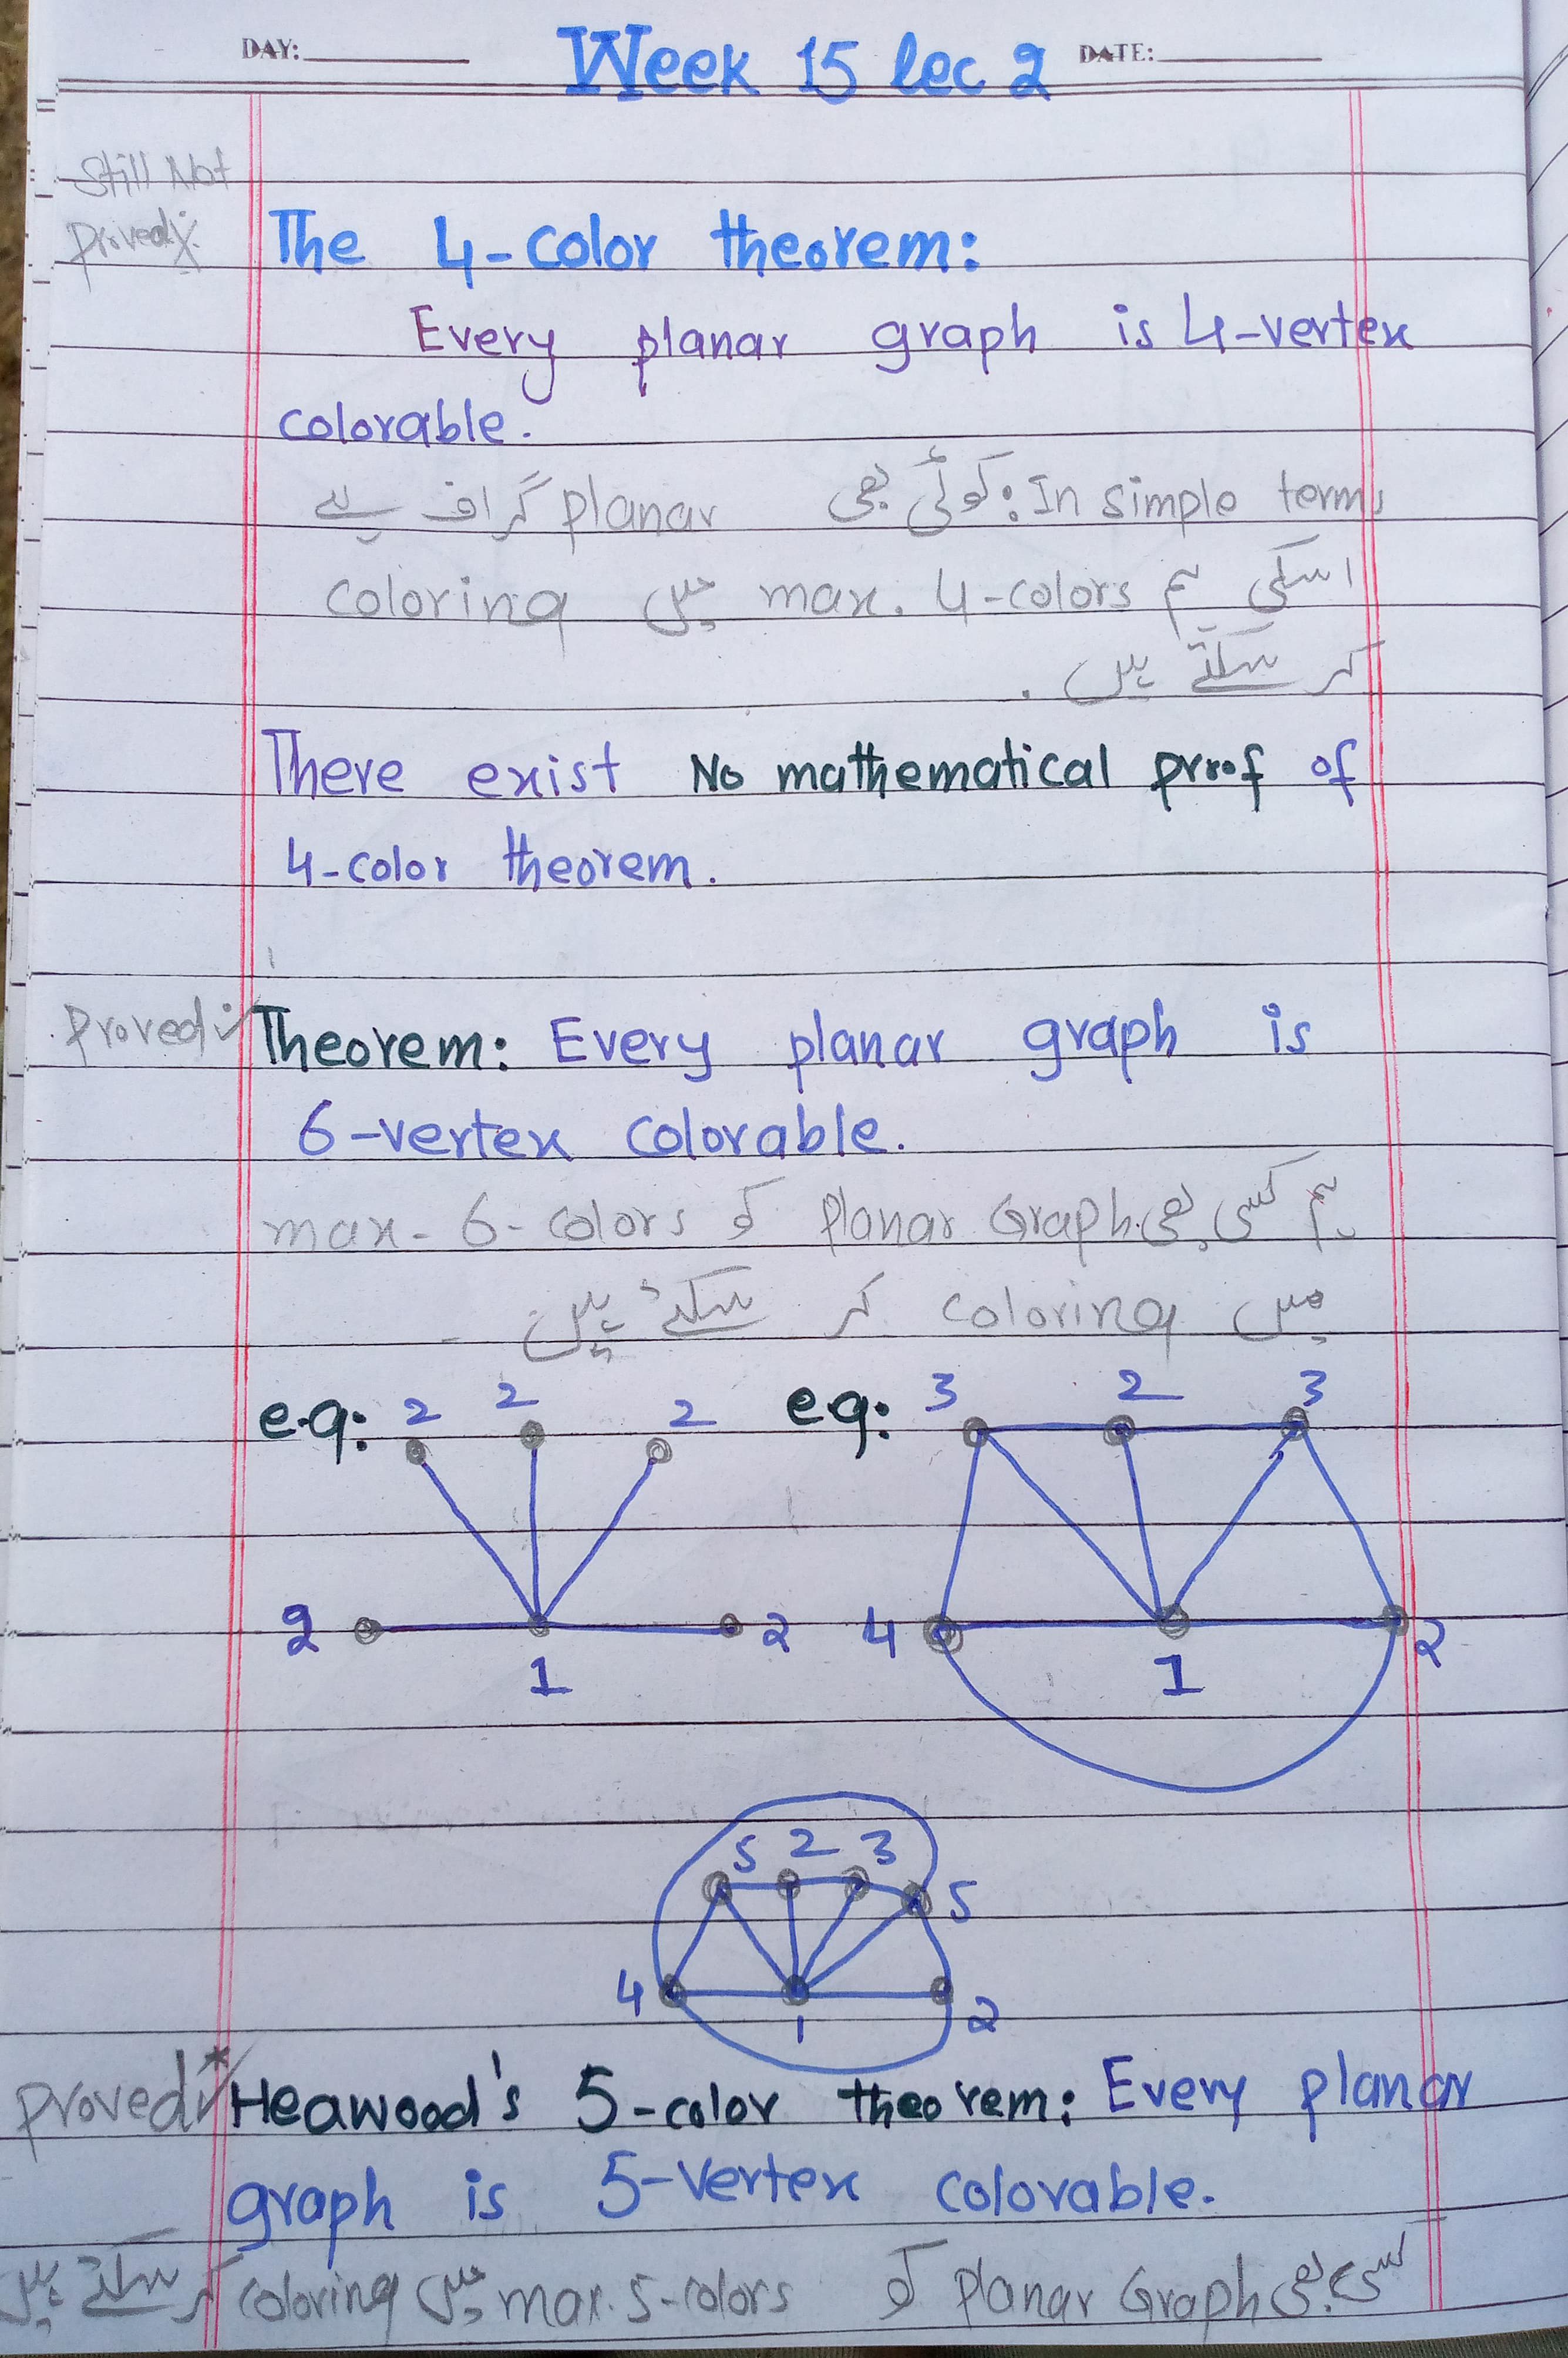 DAY: Week 15 lec 2 DATE:
Still Not
Prived
The 4-color theorem:
Every planar graph is 4-vertex
colorable.
In simple terms: کوئی بھی planar گراف ہے
اسکی ہم max. 4-colors میں coloring
کر سکتے ہیں .
There exist No mathematical proof of
4-color theorem.
Proved Theorem: Every planar graph is
6-vertex colorable.
ہم کسی بھی planar Graph کو max- 6-colors
میں coloring کر سکتے ہیں -
e.g: 2 2 2
2 1 2
eg: 3 2 3
4 1 2
5 2 3 5
4 1 2
proved * Heawood's 5-color theorem: Every planar
graph is 5-vertex colorable.
کسی بھی planar Graph کو max. 5-colors میں coloring کر سکتے ہیں